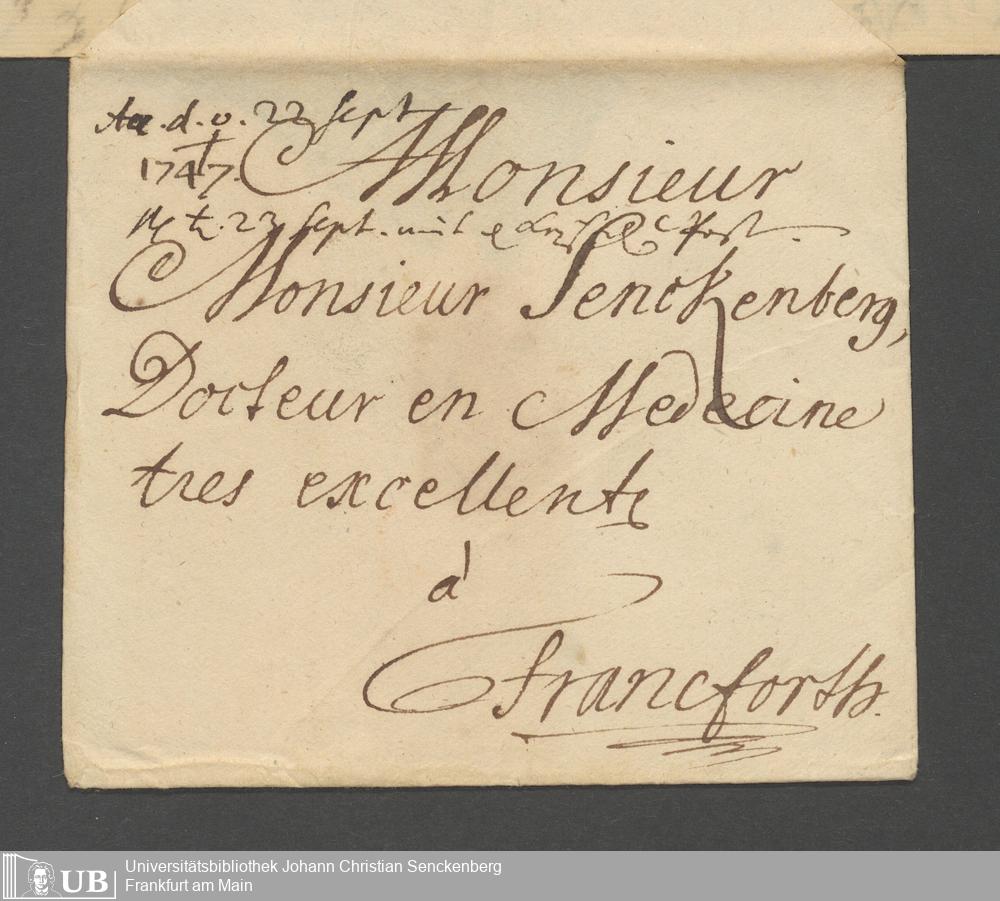 d. 22 Sept
1747.
Monsieur
23 Sept. mit Post.
Monsieur Senckenberg,
Docteur en Medecine
tres excellent
à
Francforth.
UB
Universitätsbibliothek Johann Christian Senckenberg
Frankfurt am Main